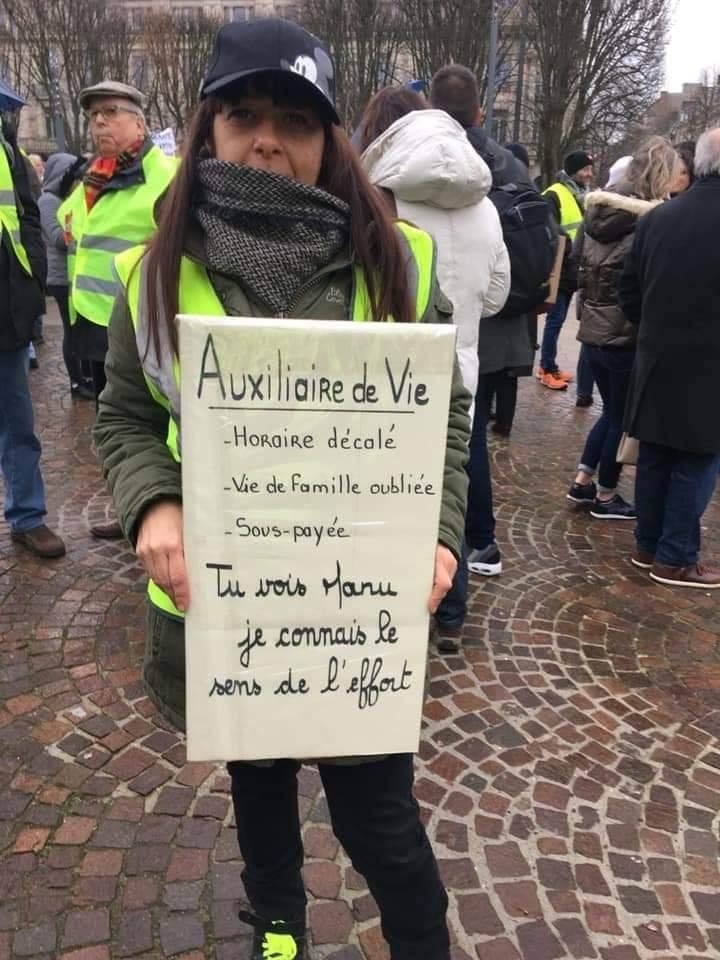 Auxiliaire de Vie
-Horaire décalé
-Vie de famille oubliée
-Sous-payée
Tu vois Manu
je connais le
sens de l'effort